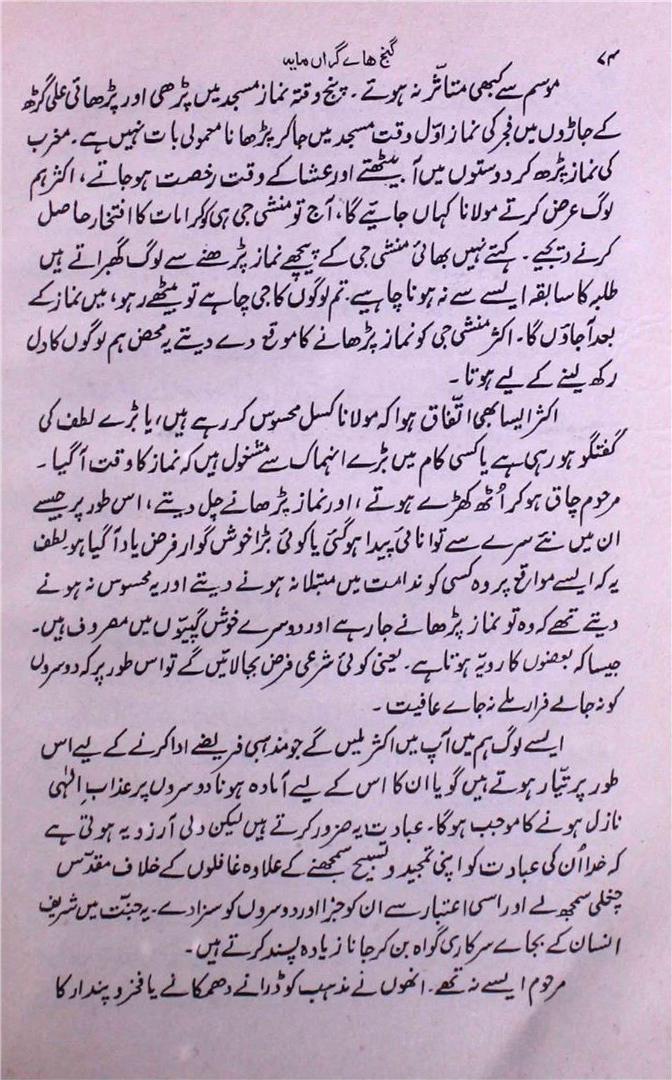 ۷۴ گنج ھاے گراں مایہ
موسم سے کبھی متاثّر نہ ہوتے۔ پنج وقتہ نماز مسجد میں پڑھی اور پڑھائی علی گڑھ
کے جاڑوں میں فجر کی نماز اوّل وقت مسجد میں جا کر پڑھانا معمولی بات نہیں ہے۔ مغرب
کی نماز پڑھ کر دوستوں میں آ بیٹھتے اور عشا کے وقت رخصت ہو جاتے، اکثر ہم
لوگ عرض کرتے مولانا کہاں جایئے گا، آج تو منشی جی ہی کو کرامات کا افتخار حاصل
کرنے دیجیے۔ کہتے نہیں بھائی منشی جی کے پیچھے نماز پڑھنے سے لوگ گھبراتے ہیں
طلبہ کا سابقہ ایسے سے نہ ہونا چاہیے۔ تم لوگوں کا جی چاہے تو بیٹھے رہو، میں نماز کے
بعد آ جاؤں گا۔ اکثر منشی جی کو نماز پڑھانے کا موقع دے دیتے یہ محض ہم لوگوں کا دل
رکھ لینے کے لیے ہوتا۔
اکثر ایسا بھی اتّفاق ہوا کہ مولانا کسل محسوس کر رہے ہیں، یا بڑے لطف کی
گفتگو ہو رہی ہے یا کسی کام میں بڑے انہماک سے مشغول ہیں کہ نماز کا وقت آ گیا۔
مرحوم چاق ہو کر اُٹھ کھڑے ہوتے، اور نماز پڑھانے چل دیتے، اس طور پر جیسے
ان میں نئے سرے سے توانائی پیدا ہو گئی یا کوئی بڑا خوش گوار فرض یاد آ گیا ہو۔ لطف
یہ کہ ایسے مواقع پر وہ کسی کو ندامت میں مبتلا نہ ہونے دیتے اور یہ محسوس نہ ہونے
دیتے تھے کہ وہ تو نماز پڑھانے جا رہے اور دوسرے خوش گپیّوں میں مصروف ہیں۔
جیسا کہ بعضوں کا رویّہ ہوتا ہے۔ یعنی کوئی شرعی فرض بجا لائیں گے تو اس طور پر کہ دوسروں
کو نہ جاے فرار ملے نہ جاے عافیت۔
ایسے لوگ ہم میں آپ میں اکثر ملیں گے جو مذہبی فریضے ادا کرنے کے لیے اس
طور پر تیّار ہوتے ہیں گویا ان کا اس کے لیے آمادہ ہونا دوسروں پر عذابِ الٰہی
نازل ہونے کا موجب ہوگا۔ عبادت یہ ضرور کرتے ہیں لیکن دلی آرزو یہ ہوتی ہے
کہ خدا اُن کی عبادت کو اپنی تمجید و تسبیح سمجھنے کے علاوہ غافلوں کے خلاف مقدّس
چغلی سمجھ لے اور اسی اعتبار سے ان کو جزا اور دوسروں کو سزا دے۔ یہ جنّت میں شریف
انسان کے بجاے سرکاری گواہ بن کر جانا زیادہ پسند کرتے ہیں۔
مرحوم ایسے نہ تھے۔ انھوں نے مذہب کو ڈرانے دھمکانے یا فخر و پندار کا